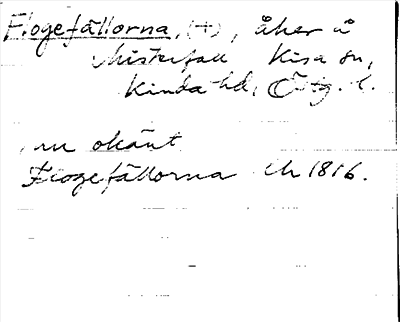 Flogefållorna, (+), åker å
Misterfall Kisa sn,
Kinda hd, Östg. l.
nu okänt
Flogefållorna Lh 1816.